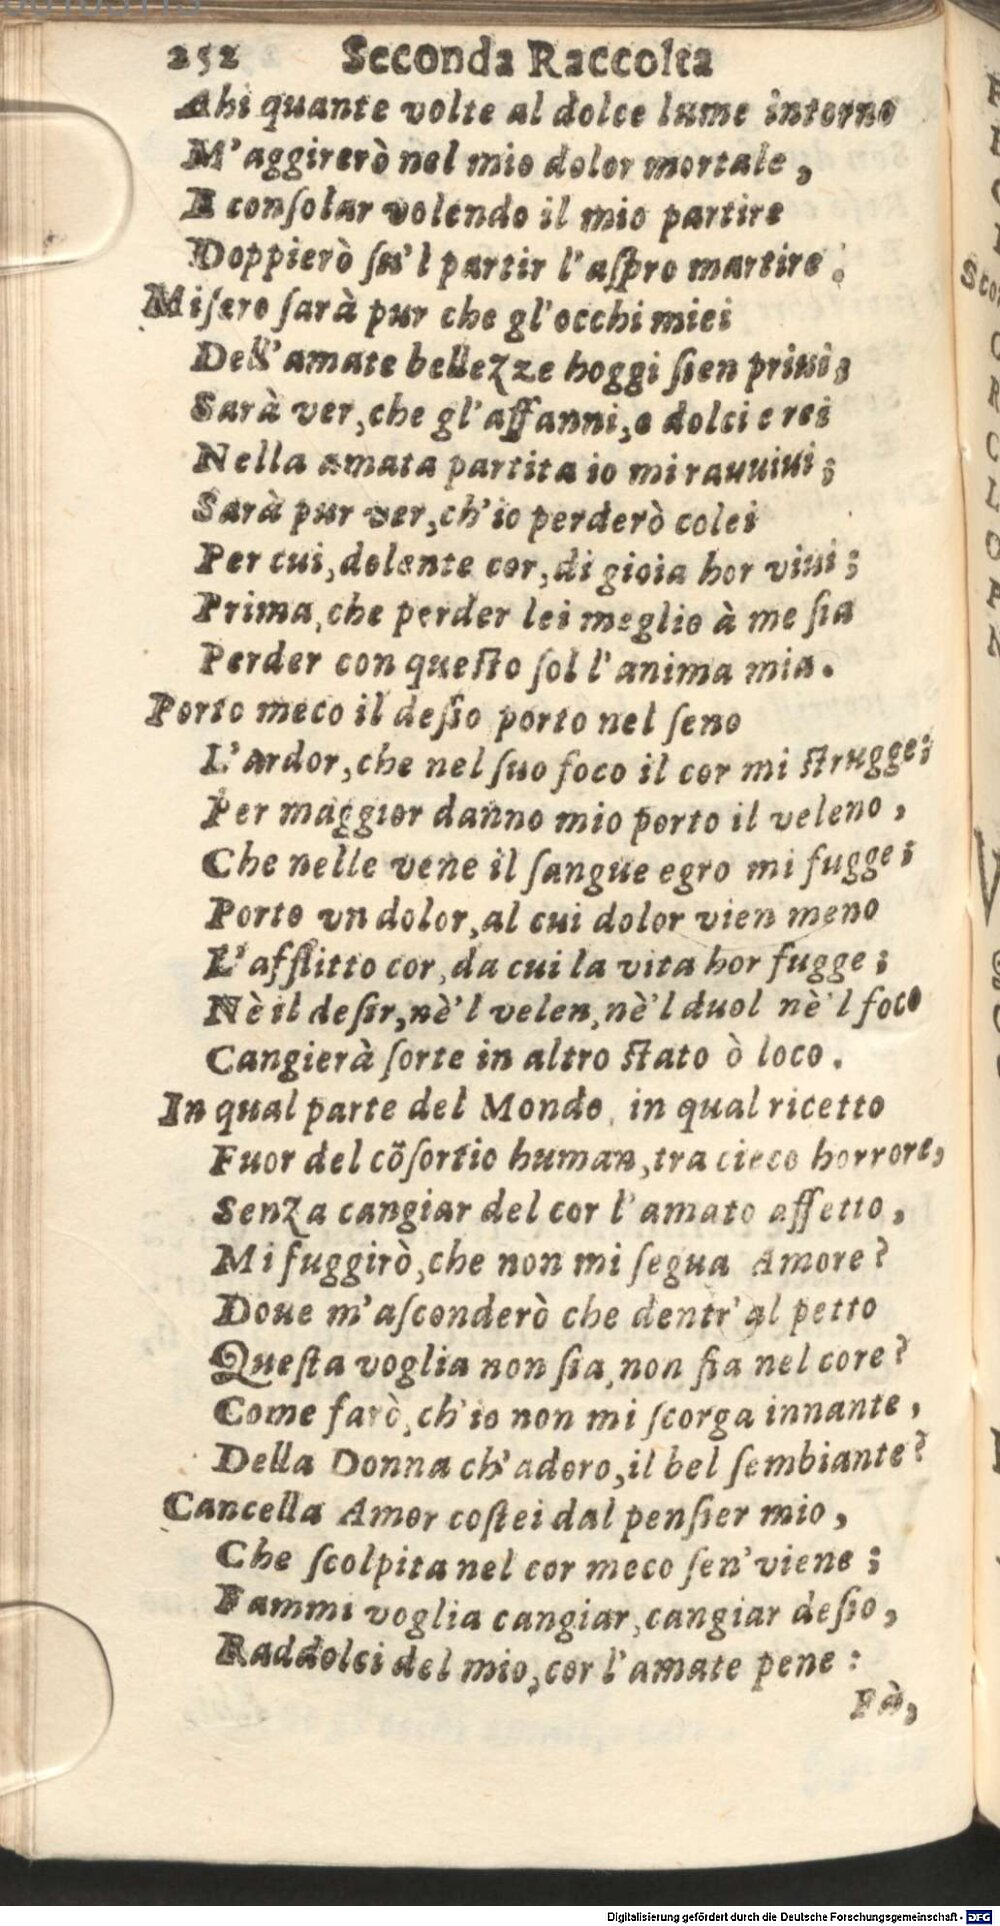 252 Seconda Raccolta
Ahi quante volte al dolce lume interno
M'aggirerò nel mio dolor mortale,
E conſolar volendo il mio partire
Doppierò ſu'l partir l'aſpro martire.
Miſero ſarà pur che gl'occhi miei
Dell'amate bellezze hoggi ſien priui;
Sarà ver, che gl'affanni, e dolci e rei
Nella amata partita io mi rauuiui;
Sarà pur ver, ch'io perderò colei
Per cui, dolente cor, di gioia hor viui;
Prima, che perder lei meglio à me ſia
Perder con queſto ſol l'anima mia.
Porto meco il deſio porto nel ſeno
L'ardor, che nel ſuo foco il cor mi ſtrugge;
Per maggior danno mio porto il veleno,
Che nelle vene il ſangue egro mi fugge;
Porto vn dolor, al cui dolor vien meno
L'afflitto cor, da cui la vita hor fugge;
Nè il deſir, nè'l velen, nè'l duol nè'l foco
Cangierà ſorte in altro ſtato ò loco.
In qual parte del Mondo, in qual ricetto
Fuor del cõſortio human, tra cieco horrore,
Senza cangiar del cor l'amato affetto,
Mi fuggirò, che non mi ſegua Amore?
Doue m'aſconderò che dentr'al petto
Queſta voglia non ſia, non ſia nel core?
Come farò, ch'io non mi ſcorga innante,
Della Donna ch'adoro, il bel ſembiante?
Cancella Amor coſtei dal penſier mio,
Che ſcolpita nel cor meco ſen'viene;
Fammi voglia cangiar, cangiar deſio,
Raddolci del mio, cor l'amate pene:
Fà,
Digitalisierung gefördert durch die Deutsche Forschungsgemeinschaft - DFG